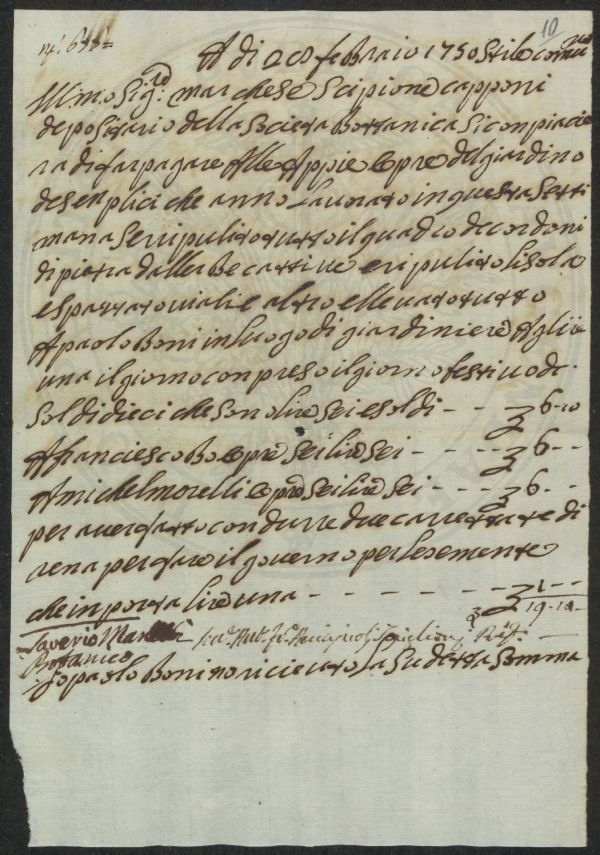 10
A di 28 febraio 1750 stile comune
Ill.mo Sig.ro marchese Scipione capponi
depositario della Societa Bottanica Si conpiacie
ra di far pagare Alle Appie opre del giardino
de senplici che anno Lavorato in questa Setti
mana Se ripulito tutto il quadro de cordoni
di pietra dalle Be e ripulito lisola
e spazzato viali e altro ellevato tutto
A paolo Boni in luogo di giardiniere A lire
una il giorno conpreso il giorno festivo de
Soldi dieci che sono lire sei e soldi - - 6-10
A franciesco Bo opre Sei lire Sei - - - - 6 - -
A michel morelli opre Sei lire Sei - - - - 6 - -
per aver fatto condurre due carrettate di
rena per fare il governo per le semente
che inporta lire una - - - - - - - 1 - -
19-10-
Saverio Manetti
Botanico
Io paolo Boni o ricievuto La Sudetta Somma